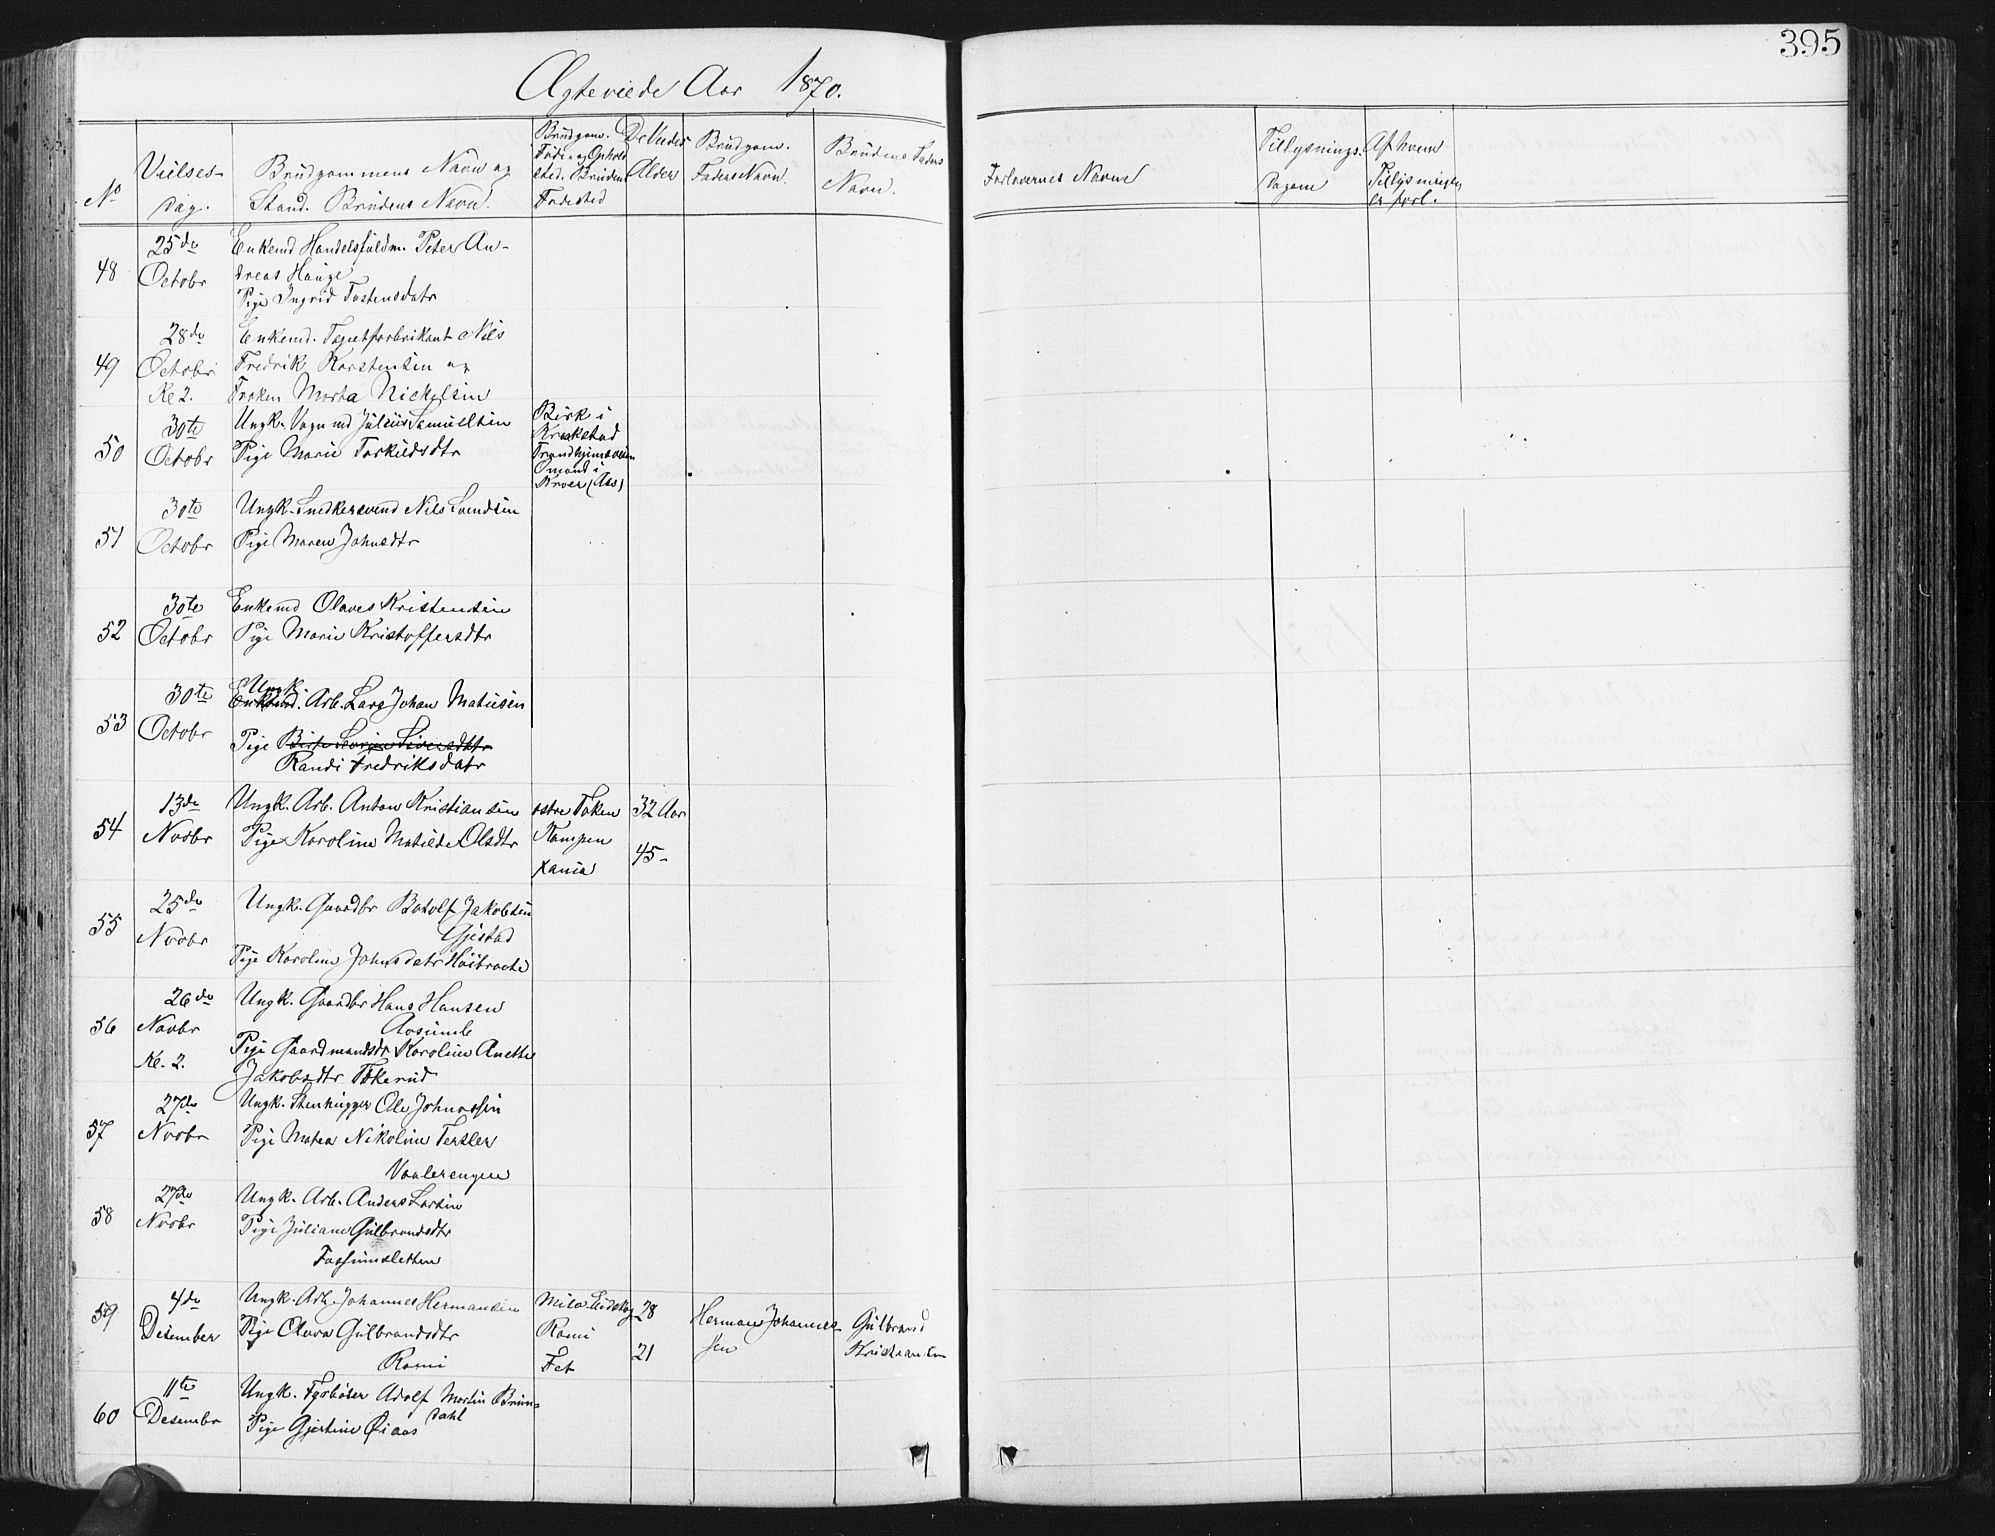 395
Ægteviede Aar 1870.
No
Vielses-
dag.
Brudgommens Navn og
Stand. Brudens Navn.
Brudgom.
Føde- og Ophold
sted. Brudens
Fødested
De Viedes
Alder
Brudgom.
Faders Navn.
Brudens Faders
Navn.
Forlovernes Navne
Tillysnings-
dagene
Af hvem
Tillysningen
er forl.
48
25de
Octobr
Enkemd Handelsfuldm. Peter An-
dreas Hauge
Pige Ingrid Tostensdatr
49
28de
Octobr
Kl 2.
Enkemd. Tapetfabrikant Nils
Fredrik Karstensen og
Frøken Marta Nickelsen
50
30te
Octobr
Ungk. Vognmd Julius Samuelsen
Pige Marie Torkildsdtr
Birk i
Kraakstad
Trondhjemsveien
Omand i
Kroer (Aas)
51
30te
Octobr
Ungk. Snedkersvend Nils Svendsen
Pige Maren Johnsdtr
52
30te
Octobr
Enkemd Olaves Kristensen
Pige Marie Kristoffersdtr
53
30te
Octobr
Ungk.
Enkemd. Arb. Lars Johan Matisen
Pige Siversdatr
Randi Fredriksdatr
54
13de
Novbr
Ungk. Arb. Anton Kristiansen
Pige Karoline Matilde Olsdtr
østre Toten
Kampen
Xania
32 Aar
45 -
55
25de
Novbr
Ungk. Gaardbr Botolf Jakobsen
Gjestad
Pige Karoline Johnsdatr Høibraate
56
26de
Novbr
Kl. 2.
Ungk. Gaardbr Hans Hansen
Aasum
Pige Gaardmandsdtr Karoline Anette
Jakobsdtr Tokerud
57
27de
Novbr
Ungk. Stenhugger Ole Johnassen
Pige Matea Nikoline Tersler
Vaalerengen
58
27de
Novbr
Ungk. Arb. Anders Larsen
Pige Juliane Gulbrandsdtr
Fossumsletten
59
4de
Desember
Ungk. Arb. Johannes Hermansen
Pige Olava Gulbrandsdtr
Romi
Eidskog
Romi
Fet
28
21
Herman Johannes-
sen
Gulbrand
Kristiansen
60
11te
Desembr
Ungk. Fyrbøter Adolf Martin Brun-
dahl
Pige Gjertine Øiaas